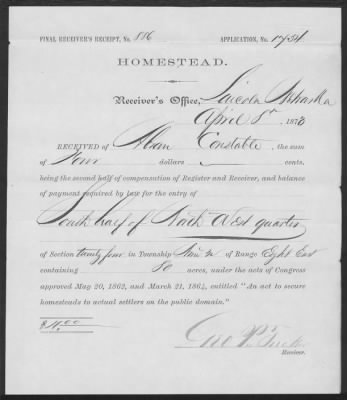 FINAL RECEIVER'S RECEIPT, No. 886 APPLICATION, No. 1734
HOMESTEAD.
Receiver's Office, Lincoln Nebraska
April 1st 1873
RECEIVED of Alban Constable, the sum
of Four dollars cents,
being the second half of compensation of Register and Receiver, and balance
of payment required by law for the entry of
South half of North West quarter
of Section twenty four in Township of Range Eight East
containing 80 acres, under the acts of Congress
approved May 20, 1862, and March 21, 1864, entitled "An act to secure
homesteads to actual settlers on the public domain."
$4.00
Geo P. Tucker
Receiver.